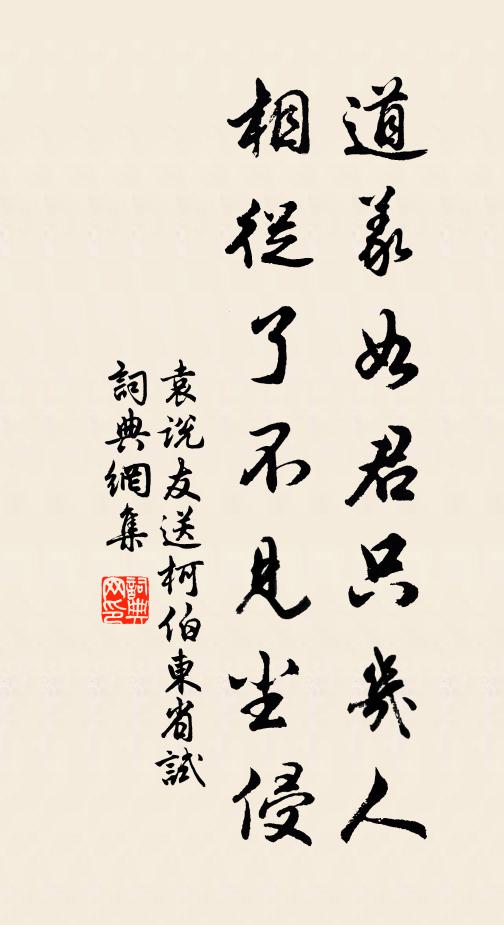 道義如君只幾人
相從了不見塵侵
袁說友送柯伯東省試
詞典網集
詞典網印